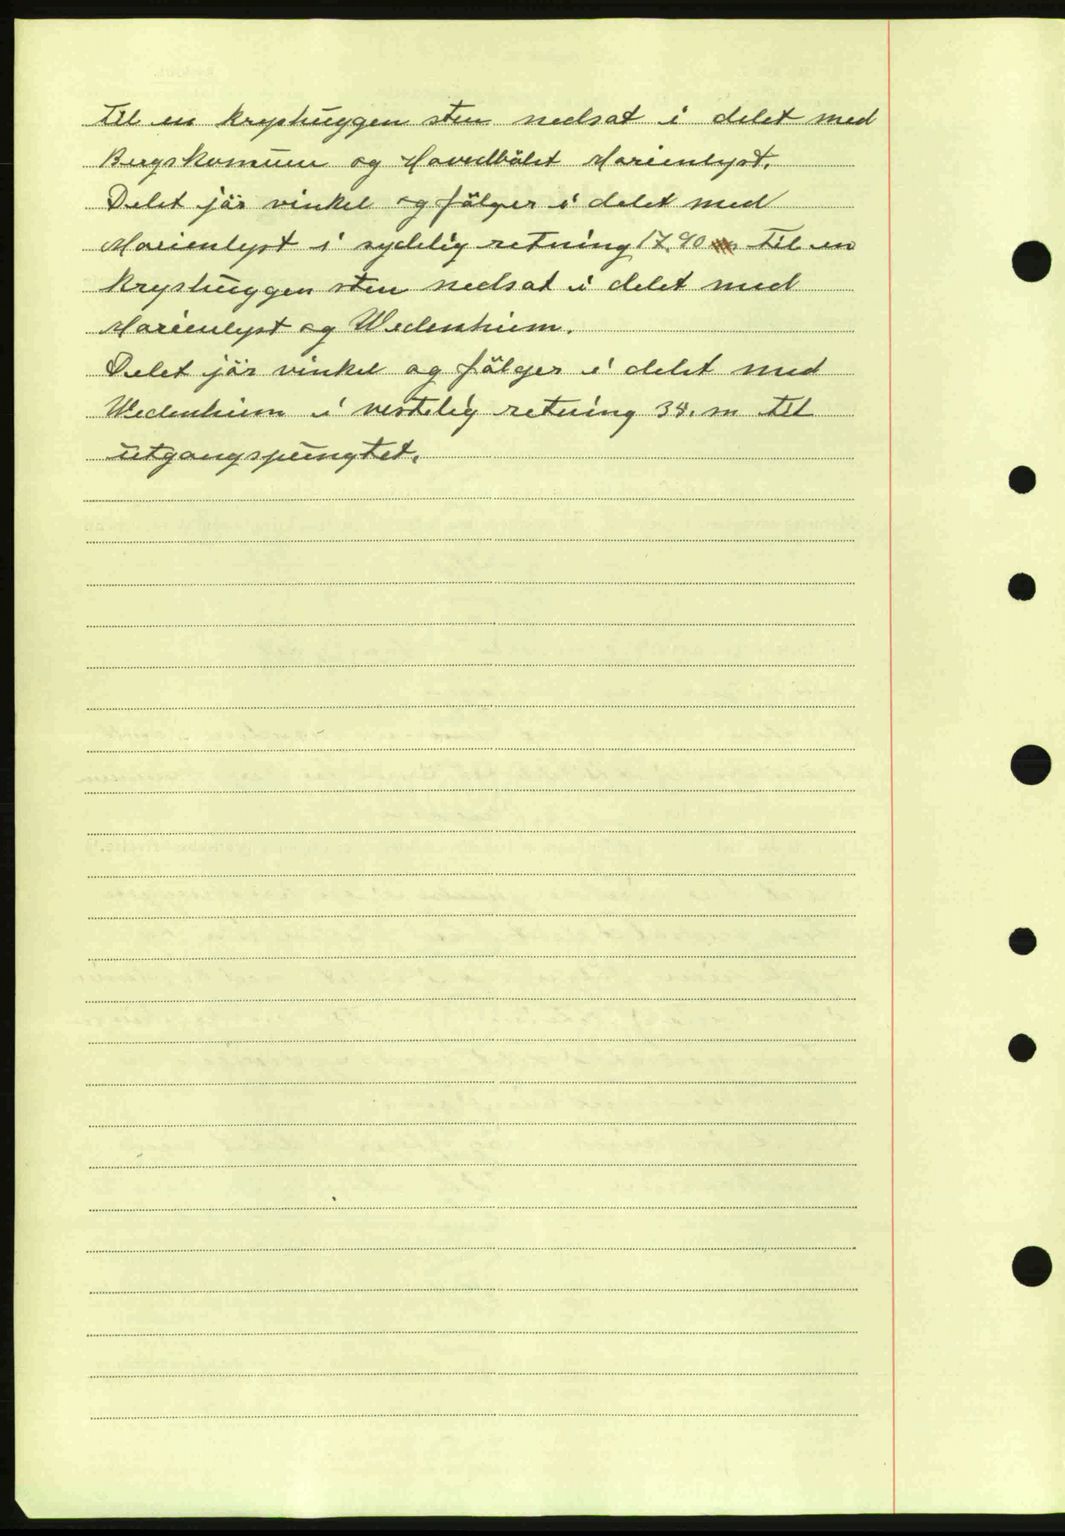 til en kryshuggen sten nedsat i delet med
Bergskomune og Hovedbölet Marienlyst.
Delet jör vinkel og fölger i delet med
Marienlyst i sydelig retning 17.90 m til en
kryshuggen sten nedsat i delet med
Marienlyst og Wedenhiem.
Delet jör vinkel og fölger i delet med
Wedenhiem i vestelig retning 34. m til
utgangspungtet.